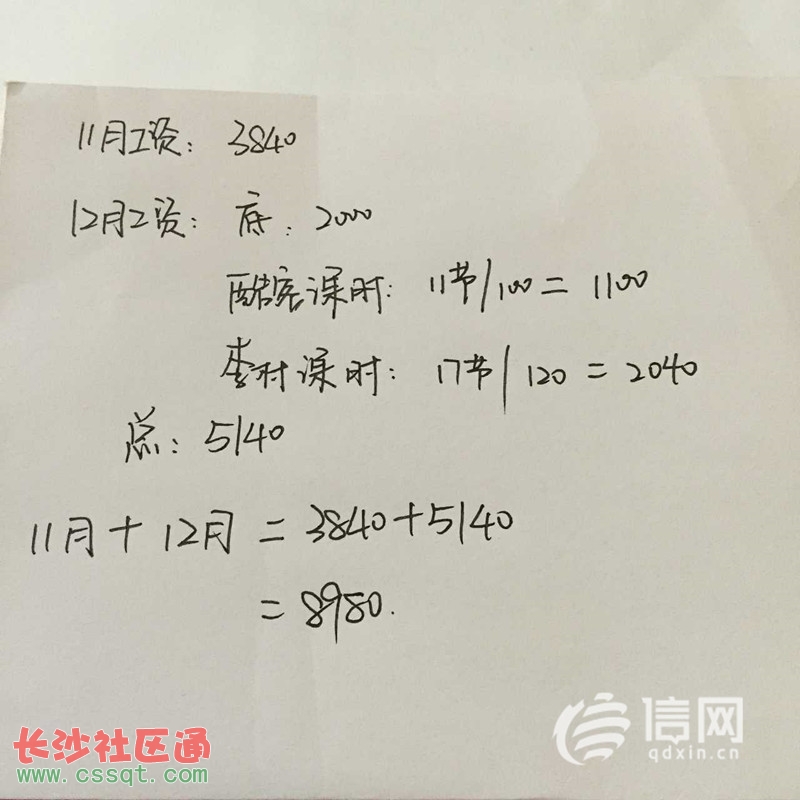 11月工资: 3840
12月工资: 底: 2000
酷客课时: 11节/100 = 1100
李村课时: 17节/120 = 2040
总: 5140
11月+12月 = 3840+5140
= 8980.
信网
qdxin.cn
长沙社区通
www.cssqt.com